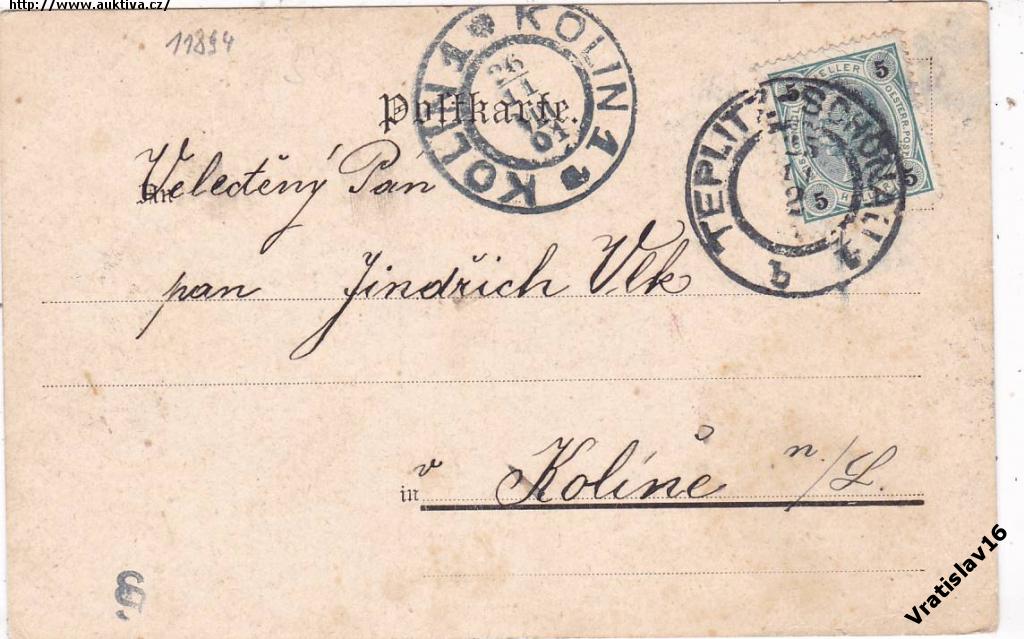 http://www.auktiva.cz/
11894
KOLIN 1 KOLIN 1
26
11
01
Postkarte.
5 HELLER 5
OESTERR. POST
5 5
TEPLITZ-SCHÖNAU 1
b
An Velectěný Pán
pan Jindřich Vlk
in v Kolíně n/L.
Vratislav16